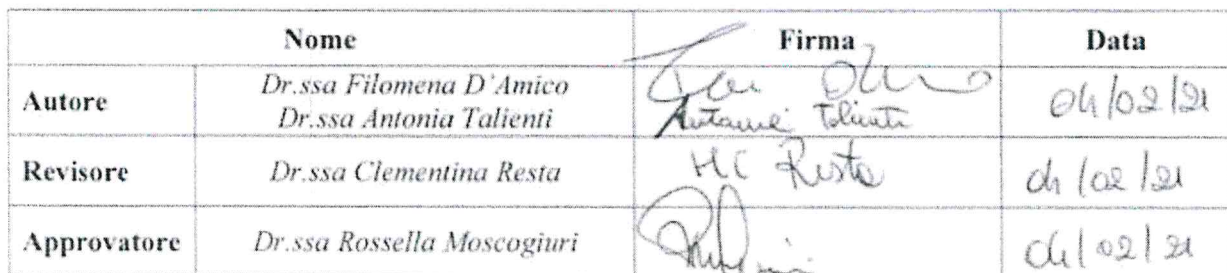 Nome Firma Data
Autore Dr.ssa Filomena D'Amico
Dr.ssa Antonia Talienti Antonia Talienti 04/02/21
Revisore Dr.ssa Clementina Resta MC Resta 04/02/21
Approvatore Dr.ssa Rossella Moscogiuri 04/02/21